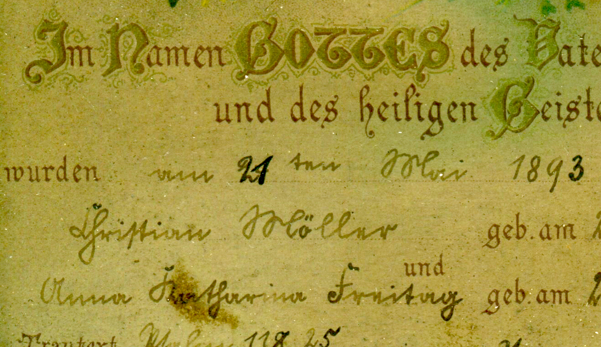 Im Namen GOTTES des Vate
und des heiligen Geiste
wurden am 21ten Mai 1893
Christian Möller geb. am 2
und
Anna Katharina Freitag geb. am 2
Trautext Psalm 118, 25